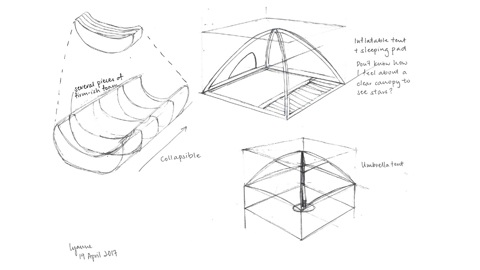 several pieces of
firm-ish foam
Collapsible
Inflatable tent
+ sleeping pad
Don't know how
I feel about a
clear canopy to
see stars?
Umbrella tent
19 April 2017